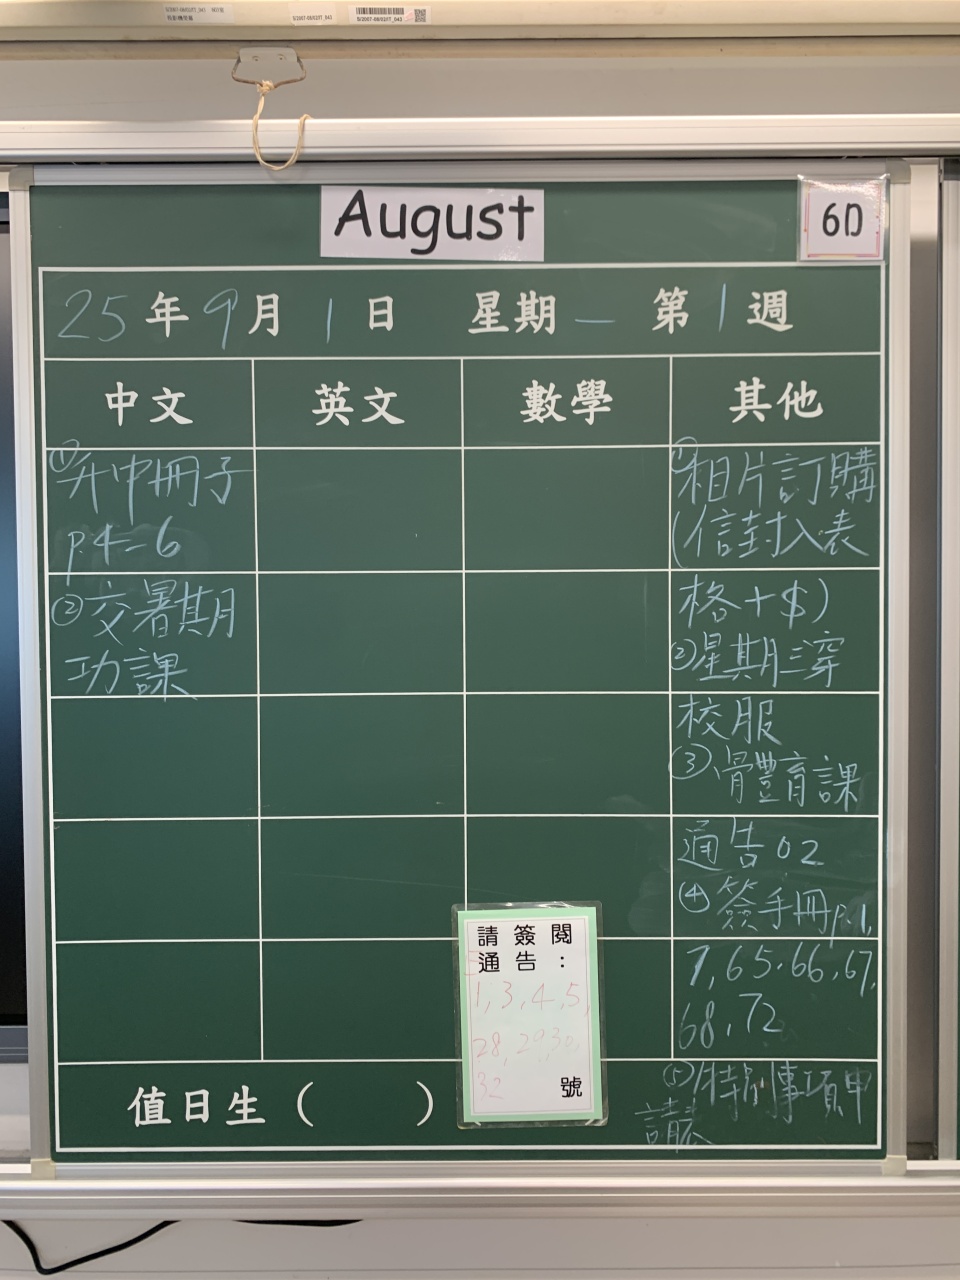 August
6D
25年9月1日 星期一 第1週
中文 英文 數學 其他
①升中冊子
p.4-6
②交暑期
功課
①相片訂購
(信封入表
格+$)
②星期三穿
校服
③滑體育課
通告02
④簽手冊p.1,
7,65,66,67,
68,72
⑤特別事項申
請表
請簽閱
通告:
1,3,4,5,
28,29,30,
32 號
值日生( )